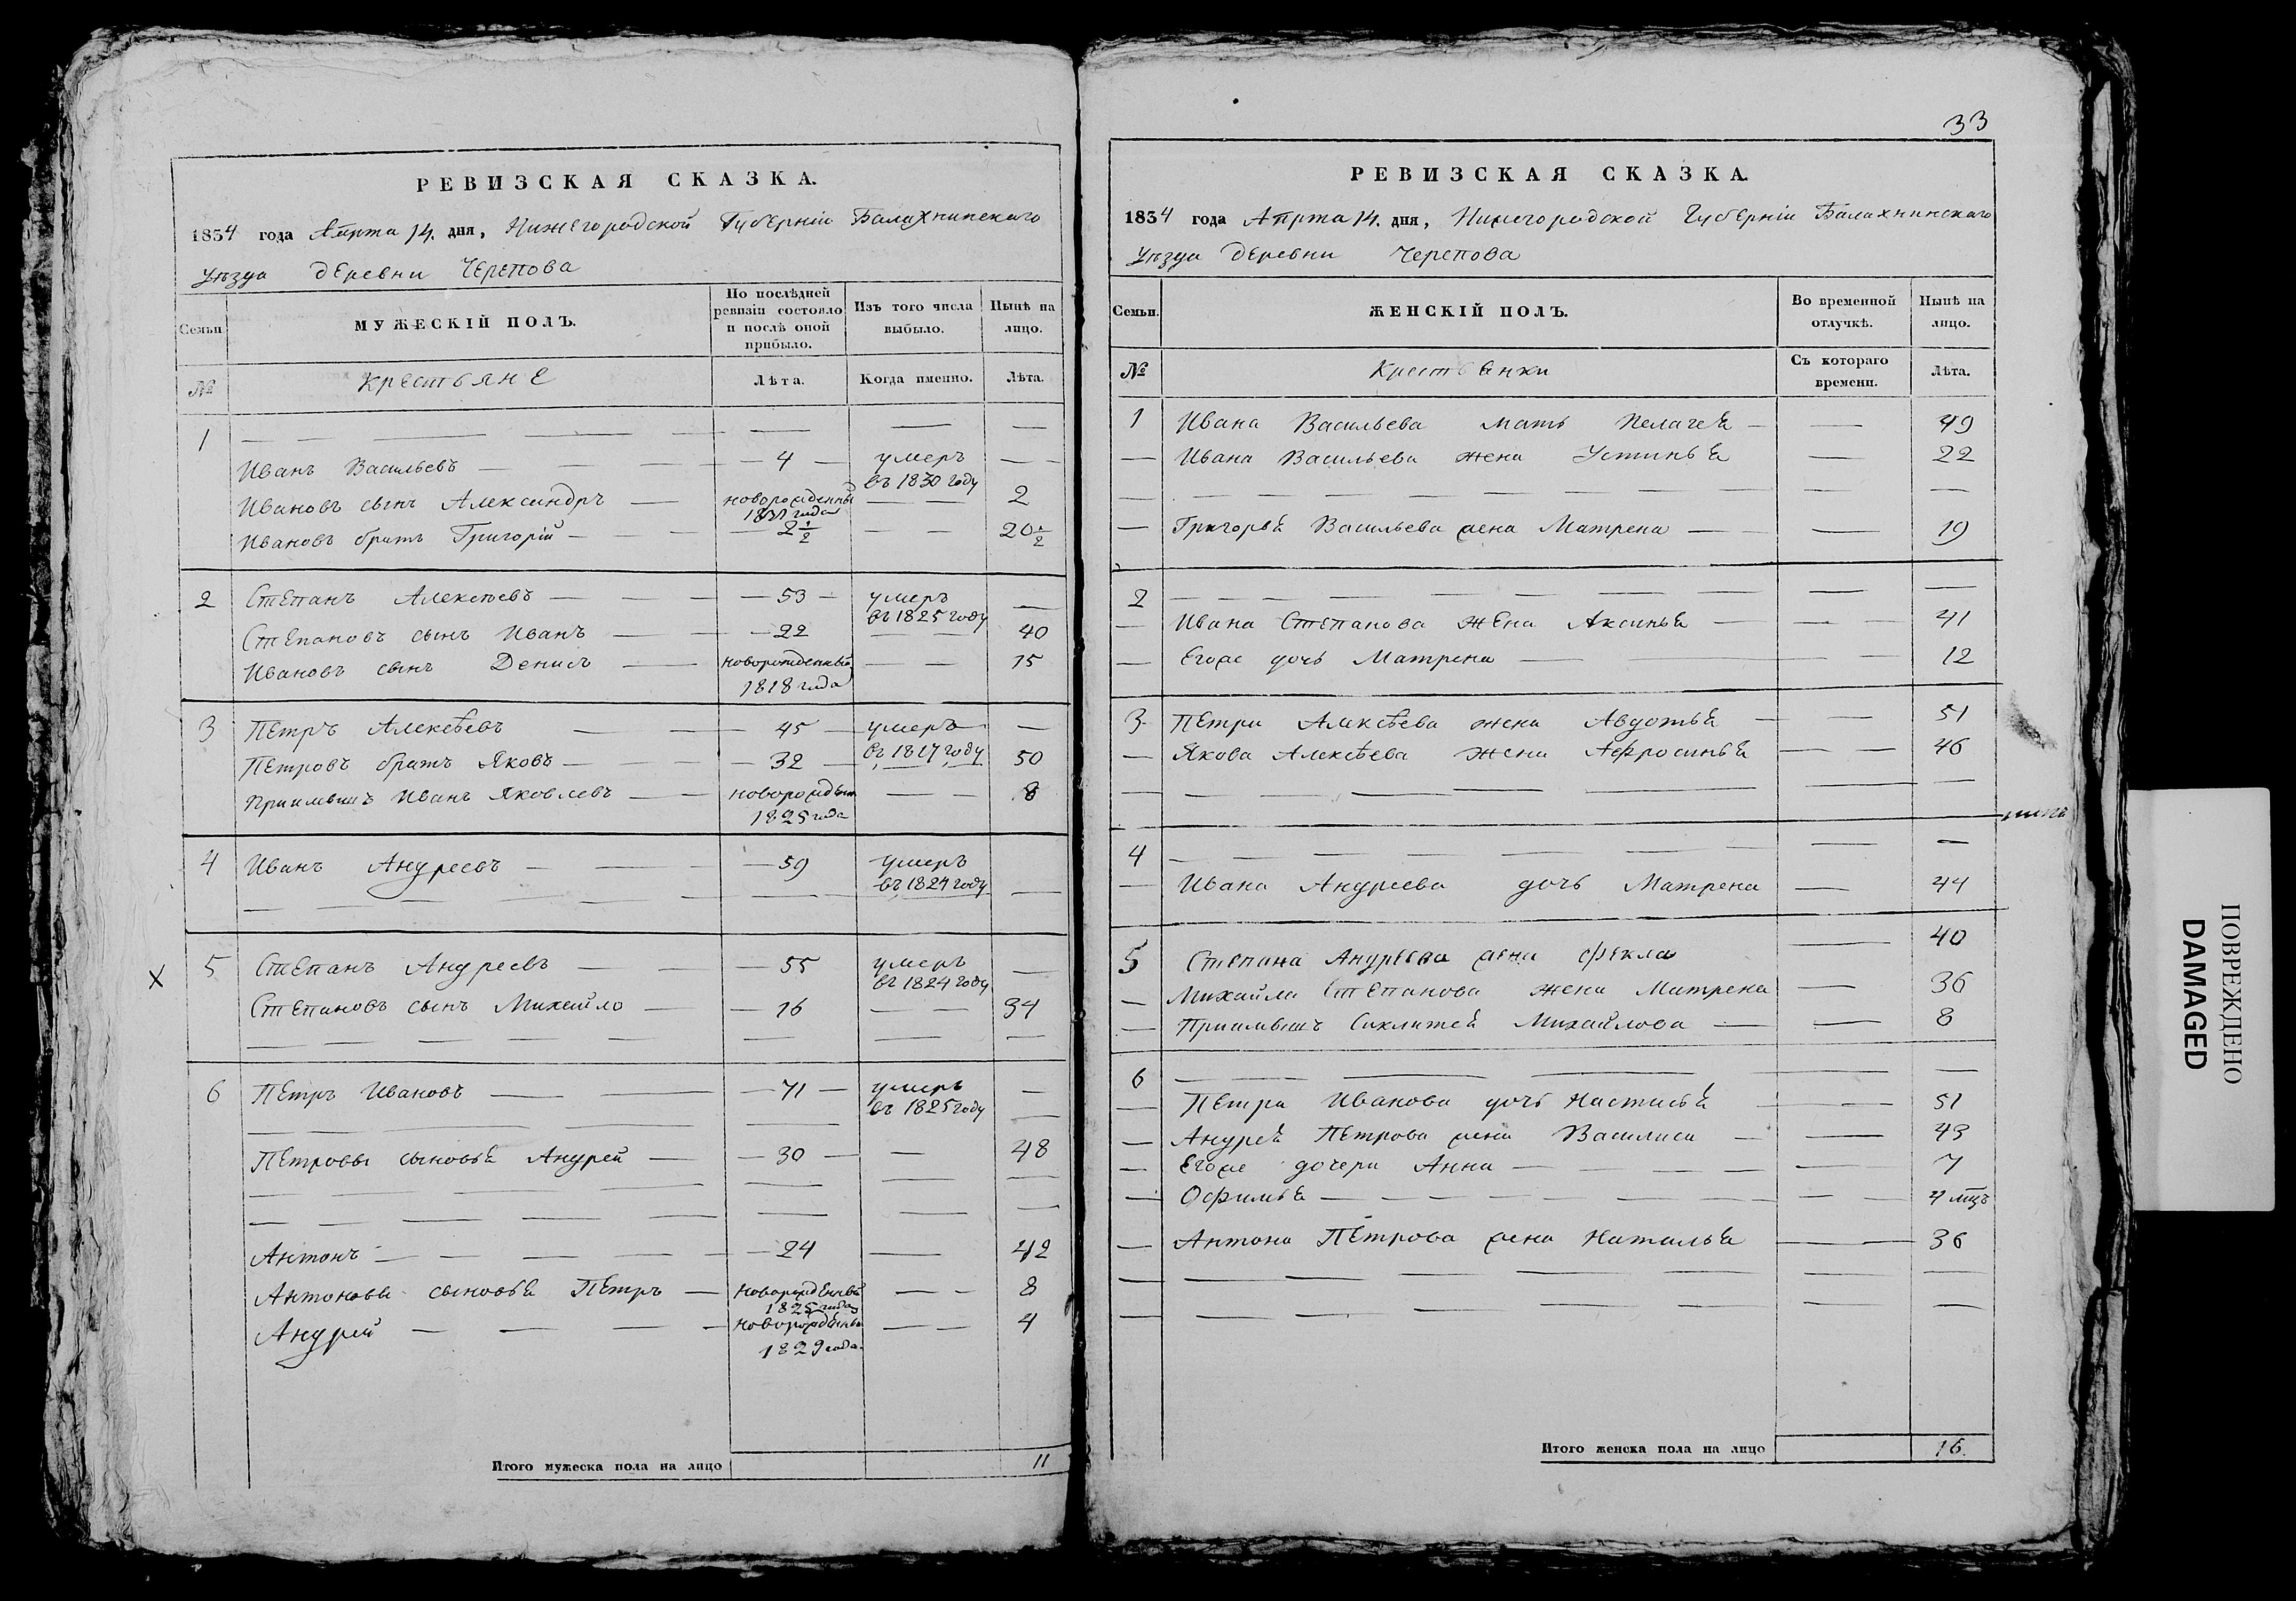 РЕВИЗСКАЯ СКАЗКА.
1834 года Апрта 14. дня, Нижегородской Губерніи Балахнинскаго
Уѣзда деревни Черепова
Семьи
МУЖЕСКІЙ ПОЛЪ.
По послѣдней ревизіи состояло и послѣ оной прибыло.
Изъ того числа выбыло.
Нынѣ на лицо.
№
Крестьяне
Лѣта.
Когда именно.
Лѣта.
1
Иванъ Васильевъ 4 умеръ въ 1830 году
Ивановъ сынъ Александръ новорожденный 1831 года 2
Ивановъ братъ Григорій 2 1/2 20 1/2
2 Степанъ Алексѣевъ 53 умеръ въ 1825 году
Степановъ сынъ Иванъ 22 40
Ивановъ сынъ Денисъ новорожденный 1818 года 15
3 Петръ Алексѣевъ 45 умеръ въ 1817 году
Петровъ братъ Яковъ 32 50
Приимышъ Иванъ Яковлевъ новорожден 1825 года 8
4 Иванъ Андреевъ 59 умеръ въ 1824 году
Х 5 Степанъ Андреевъ 55 умеръ въ 1824 году
Степановъ сынъ Михайло 16 34
6 Петръ Ивановъ 71 умеръ въ 1825 году
Петровы сыновья Андрей 30 48
Антонъ 24 42
Антоновы сыновья Петръ новорожденный 1825 года 8
Андрей новорожденный 1829 года 4
Итого мужеска пола на лицо 11
33
РЕВИЗСКАЯ СКАЗКА.
1834 года Апрта 14. дня, Нижегородской Губерніи Балахнинскаго
Уѣзда деревни Черепова
Семьи.
ЖЕНСКІЙ ПОЛЪ.
Во временной отлучкѣ.
Нынѣ на лицо.
№
Крестьянки
Съ котораго времени.
Лѣта.
1 Ивана Васильева мать Пелагея 49
Ивана Васильева жена Устинья 22
Григорья Васильева жена Матрена 19
2
Ивана Степанова жена Аксинья 41
Егоже дочь Матрена 12
3 Петра Алексѣева жена Авдотья 51
Якова Алексѣева жена Афросинья 46
4
Ивана Андреева дочь Матрена 44
5 Степана Андреева жена Фекла 40
Михайла Степанова жена Матрена 36
Приимышъ Михайлова 8
6
Петра Иванова дочь Настасья 51
Андрея Петрова жена Василиса 43
Егоже дочери Анна 7
Офимья 4 мцъ
Антона Петрова жена Наталья 36
Итого женска пола на лицо 16.
ПОВРЕЖДЕНО
DAMAGED